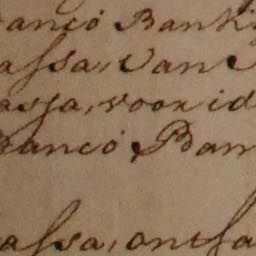 Banco Bank
Cassa, Van
assa, voor id
Banco, Ban
Cassa, ontfa